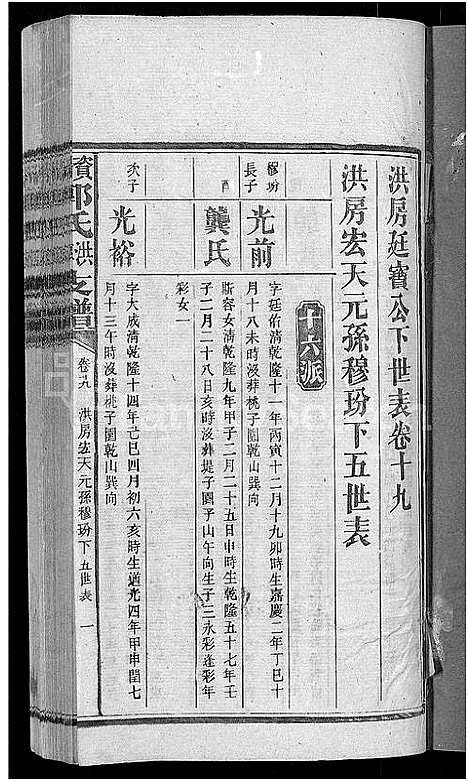 洪房廷寶公下世表卷十九
洪房宏天元孫穆玢下五世表
十六派
穆玢
長子
光前
字廷佑清乾隆十一年丙寅十二月十九卯時生嘉慶二年丁巳十
月十八未時沒葬桃子園乾山巽向
配
龔氏
斯容女清乾隆九年甲子二月二十五日申時生乾隆五十七年壬
子二月二十八日亥時沒葬堤子園子山午向生子三永彩逢彩年
彩女一
次子
光裕
字大成清乾隆十四年己巳四月初六亥時生道光四年甲申閏七
月十三午時沒葬桃子園乾山巽向
資邱氏洪支譜
卷十九
洪房宏天元孫穆玢下五世表
一